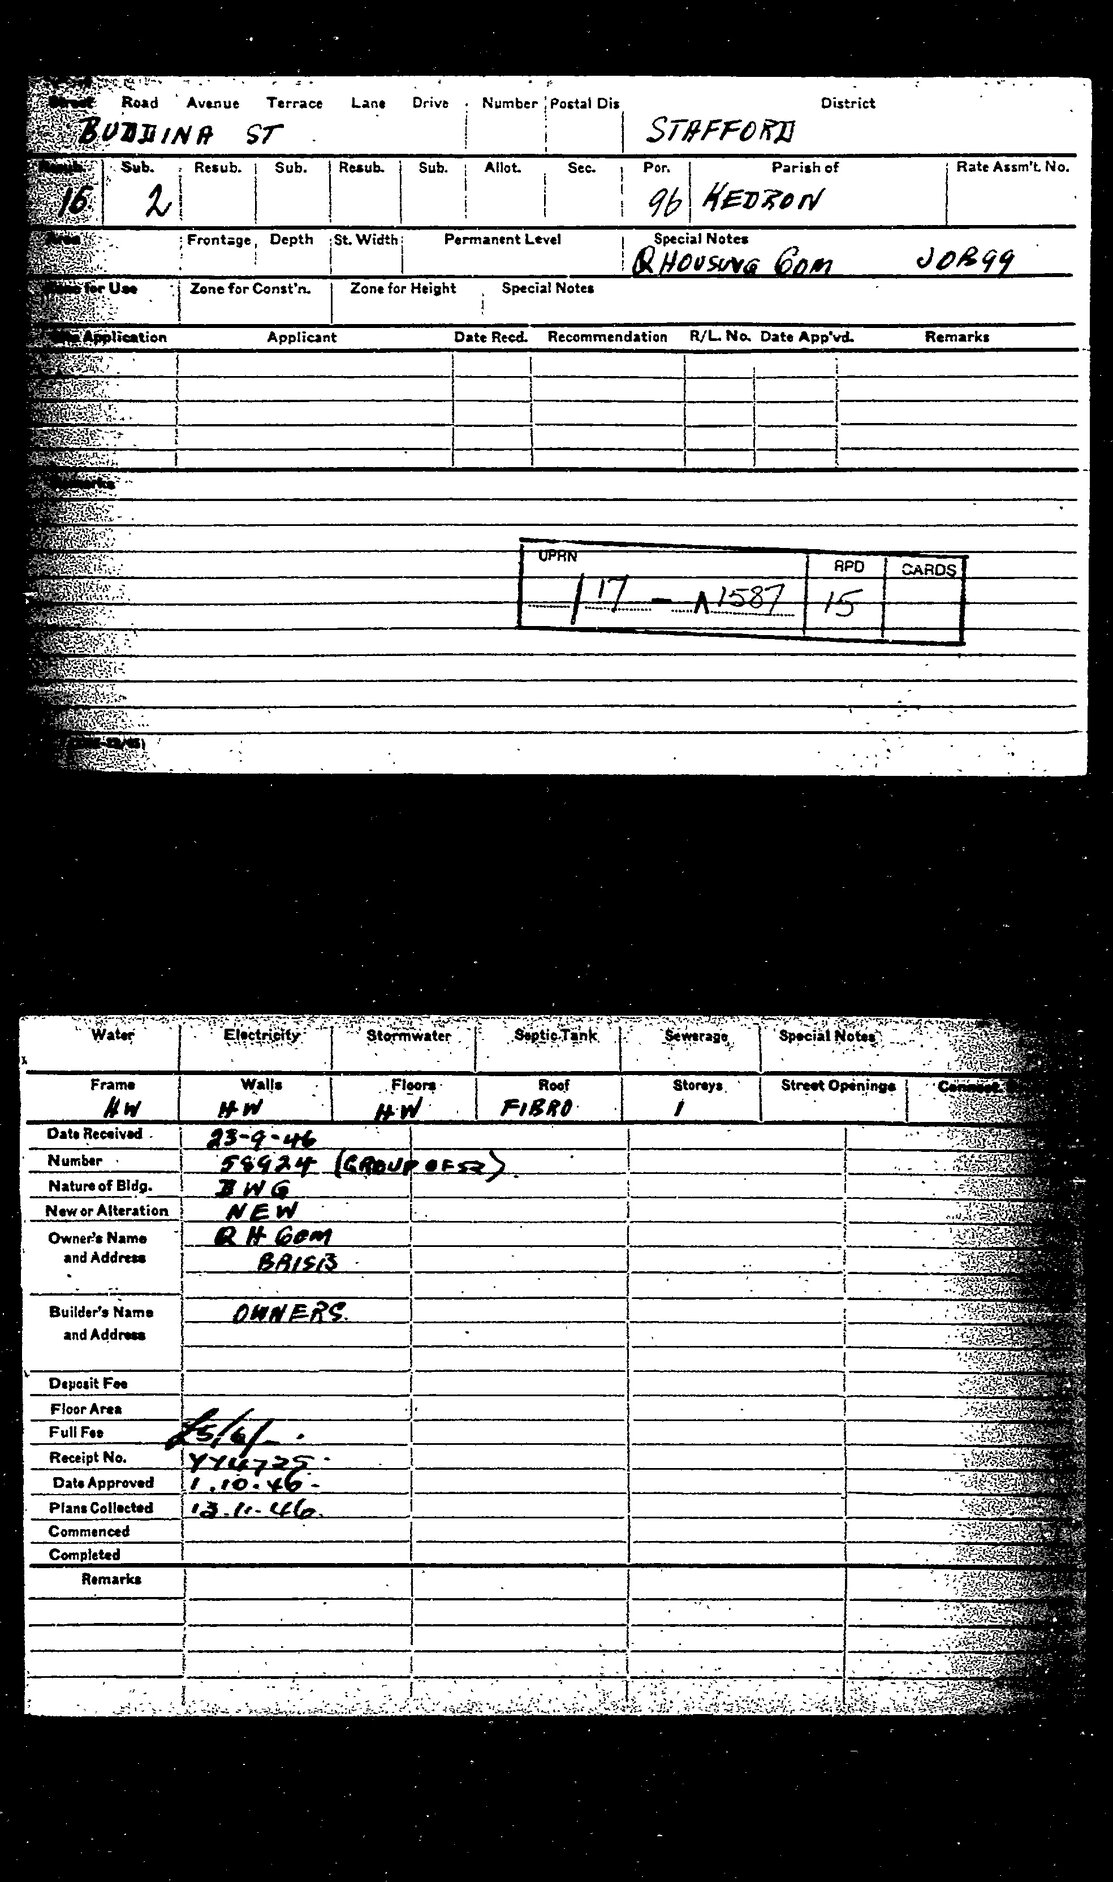 Street Road Avenue Terrace Lane Drive Number Postal Dis District
BUDDINA ST STAFFORD
Resub. Sub. Resub. Sub. Resub. Sub. Allot. Sec. Por. Parish of Rate Assm't. No.
16 2 96 KEDRON
Area Frontage Depth St. Width Permanent Level Special Notes
Q HOUSING COM JOB 99
Zone for Use Zone for Const'n. Zone for Height Special Notes
Site Application Applicant Date Recd. Recommendation R/L. No. Date App'vd. Remarks
Remarks
UPRN RPD CARDS
/ 17 - 1587 15
Water Electricity Stormwater Septic Tank Sewerage Special Notes
Frame Walls Floors Roof Storeys Street Openings Connect.
HW HW HW FIBRO 1
Date Received 23-9-46
Number 58924 (GROUP OF 52)
Nature of Bldg. DWG
New or Alteration NEW
Owner's Name Q H COM
and Address BRISB
Builder's Name OWNERS.
and Address
Deposit Fee
Floor Area
Full Fee £5/6/-.
Receipt No. YY4725
Date Approved 1.10.46
Plans Collected 13.11.46.
Commenced
Completed
Remarks